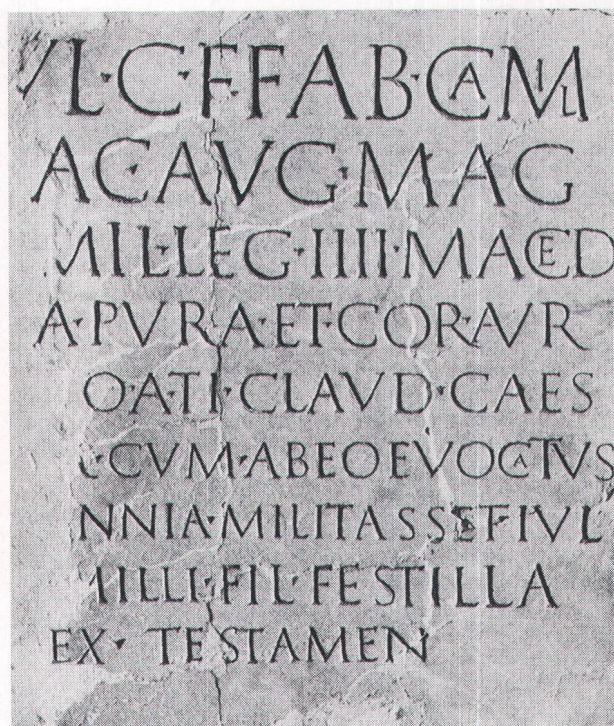 VL·C·F·FAB·CAMIL
AC·AVG·MAG
MIL·LEG·IIII·MACED
A·PVRA·ET·COR·AVR
O·A·TI·CLAVD·CAES
CVM·ABEOEVOCATVS
NNIA·MILITASSET·IVL
MILLI·FIL·FESTILLA
EX· TESTAMEN